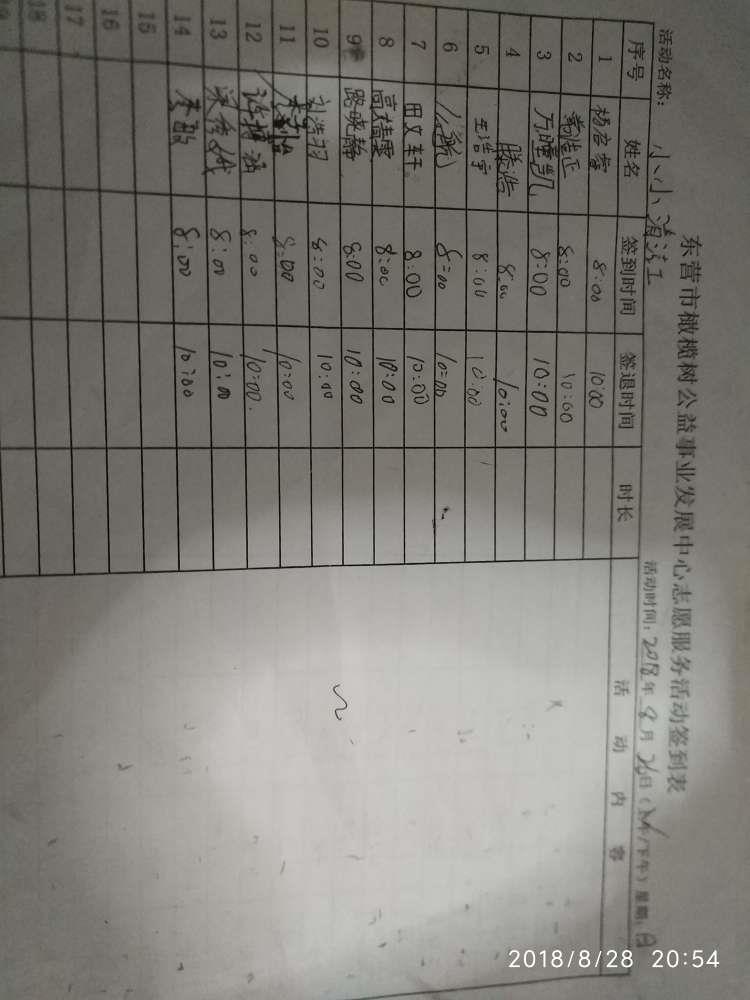 东营市橄榄树公益事业发展中心志愿服务活动签到表
活动名称: 小小清洁工 活动时间: 2018年8月26日(上午/下午)星期:日
序号 姓名 签到时间 签退时间 时长 活动内容
1 8:00 10:00
2 8:00 10:00
3 万曈凯 8:00 10:00
4 滕浩 8:00 10:00
5 王浩宇 8:00 10:00
6 8:00 10:00
7 田文轩 8:00 10:00
8 高楷霖 8:00 10:00
9 路晓静 8:00 10:00
10 刘浩羽 8:00 10:00
11 8:00 10:00
12 8:00 10:00
13 8:00 10:00
14 8:00 10:00
15
16
17
18
2018/8/28 20:54